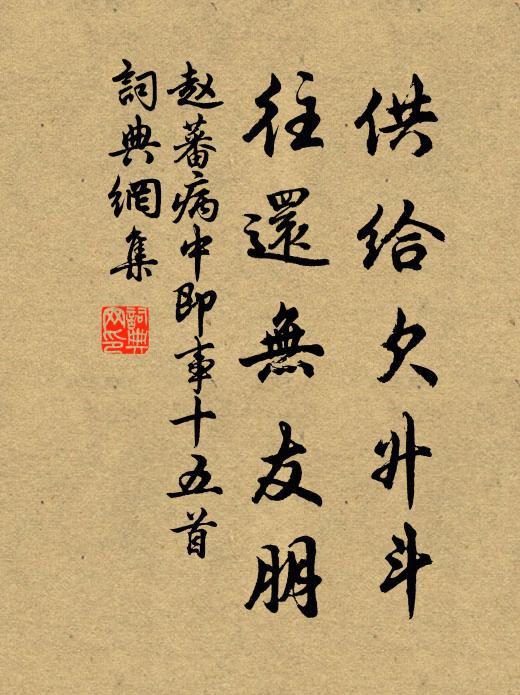 供給欠升斗
往還無友朋
赵蕃病中即事十五首
詞典網集
詞典網印